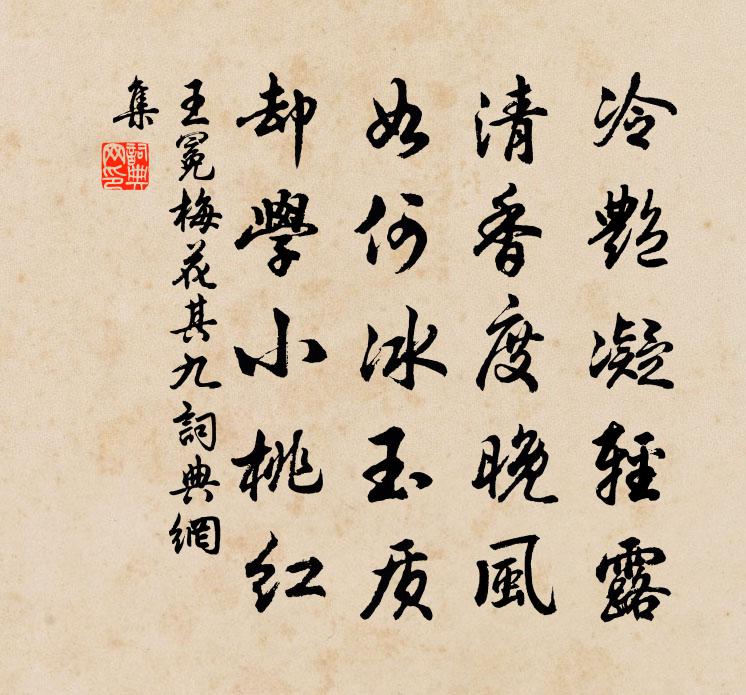 冷艷凝輕露
清香度晚風
如何冰玉質
却學小桃紅
王冕梅花其九詞典網
集
詞典
网印